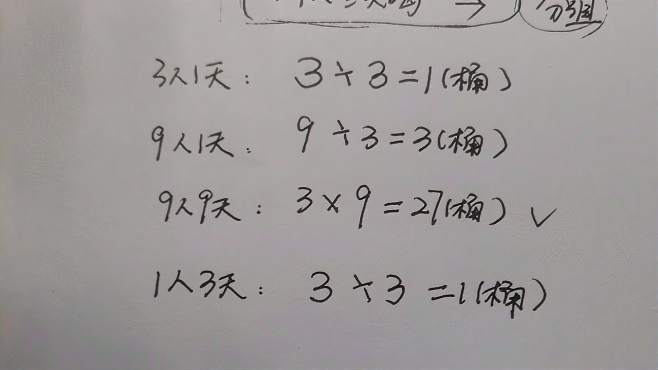 3人1天： 3÷3=1(桶)
9人1天： 9÷3=3(桶)
9人9天： 3×9=27(桶) ✓
1人3天： 3÷3=1(桶)